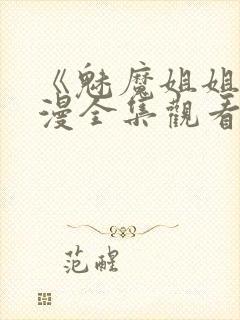 《魅魔姐姐
漫全集觀看
范醒